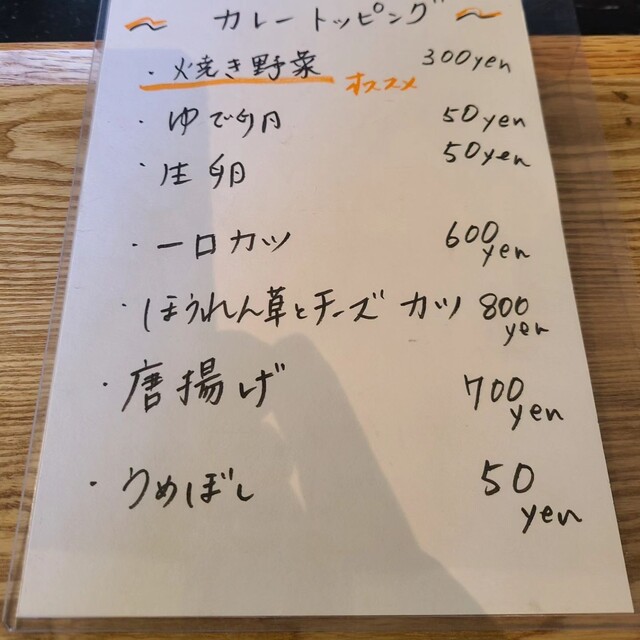 ～ カレートッピング ～
・焼き野菜 300yen
オススメ
・ゆで卵 50yen
・生卵 50yen
・一口カツ 600yen
・ほうれん草とチーズ カツ 800yen
・唐揚げ 700yen
・うめぼし 50yen